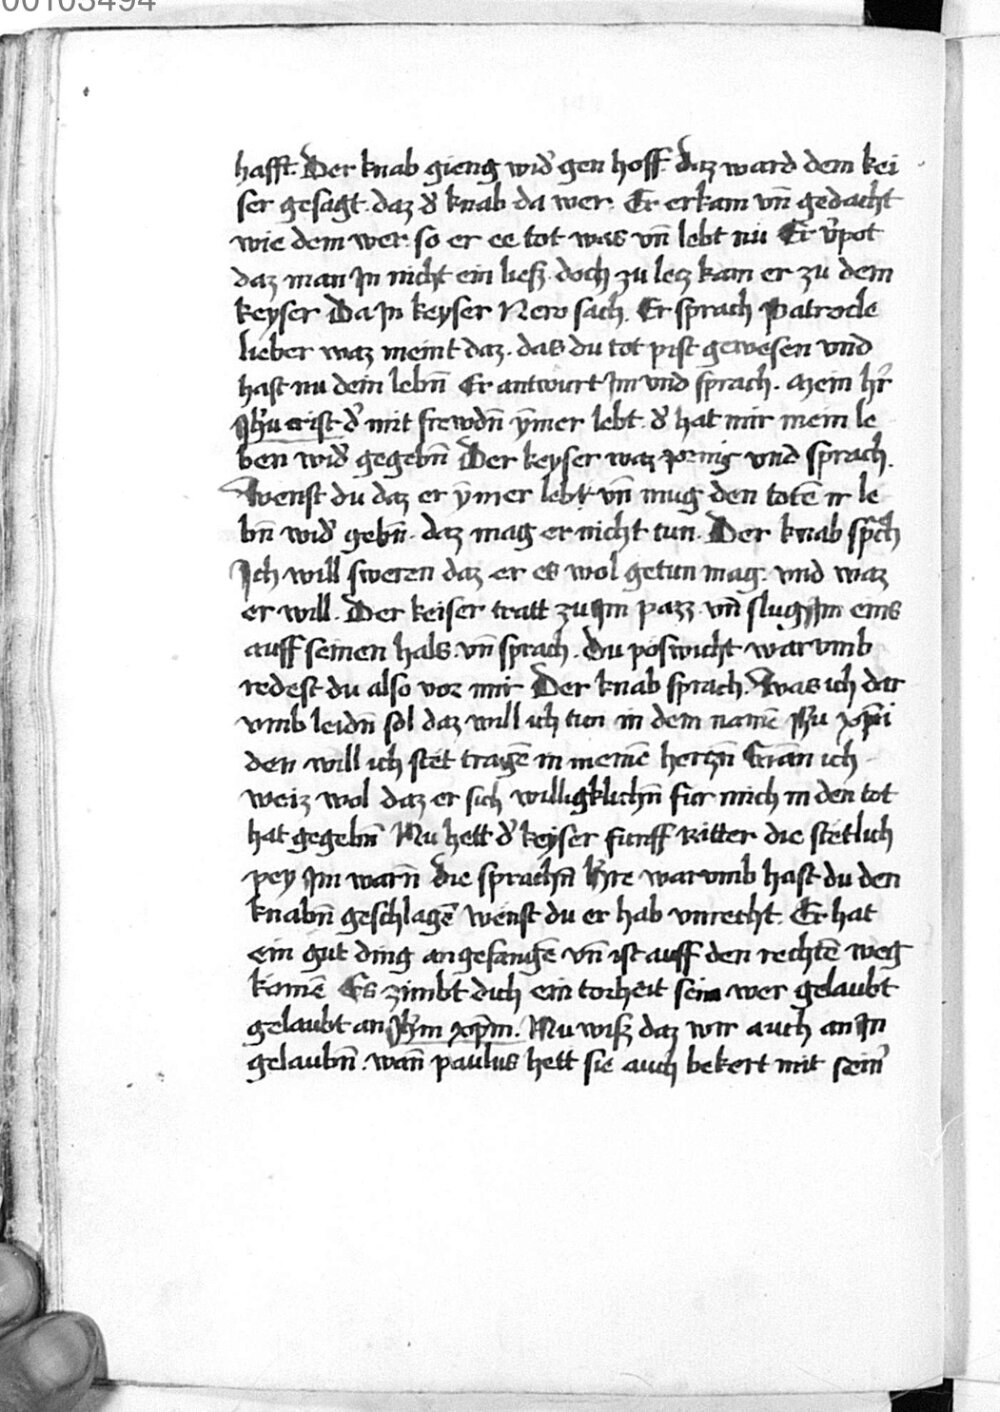 00103494
hafft. Der knab gieng wid̉ gen hoff. daz ward dem kei
ser gesagt. daz d̉ knab da wer. Er erkam vn̄ gedacht
wie dem wer. so er ee tot was vn̄ lebt nu Er v̉pot
daz man Jn nicht ein ließ. doch zu lecz kam er zu dem
keyser Da Jn keyser Nero sach. Er sprach Patrocle
lieber waz meint daz. das du tot pist gewesen vnd
hast nu dein lebn̄ Er antwurt Jm vnd sprach. Mein hr̉
Jh̄u crist d̉ mit frewdn̄ ȳmer lebt. d̉ hat mir mein le
ben wid̉ gegebn̄ Der keyser waz zornig vnd sprach.
Wenst du daz er ȳmer lebt vn̄ mug den totē ir le
bn̄ wid̉ gebn̄. daz mag er nicht tun. Der knab sp̄ch
Jch will sweren daz er es wol getun mag. vnd waz
er will. Der keiser tratt zu Jm pazz vn̄ slug Jm eins
auff seinen hals. vn̄ sprach. Du poswicht warvmb
redest du also vor mir Der knab sprach. Was ich dar
vmb leidn̄ sol daz will ich tun in dem namē Jh̄u xp̄i
den will ich stet tragē in meinē hertzn̄ Wan̄ ich
weiz wol daz er sich willigklichn̄ fur mich in den tot
hat gegebn̄ Nu hett d̉ keyser funff Ritter die stetlich
pey Jm warn̄ die sprachn̄ h̉re warvmb hast du den
knabn̄ geschlagē wenst du er hab vnrecht. Er hat
ein gut ding angefangē vn̄ ist auff den rechtē weg
komē Es zimbt dich ein torheit sein wer gelaubt
gelaubt an Jh̄m xp̄m. Nu wiß daz wir auch an Jn
gelaubn̄. wan̄ paulus hett sie auch bekert mit sein̉